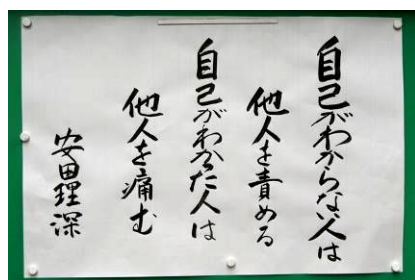 自己がわからない人は
他人を責める
自己がわかった人は
他人を痛む
安田理深